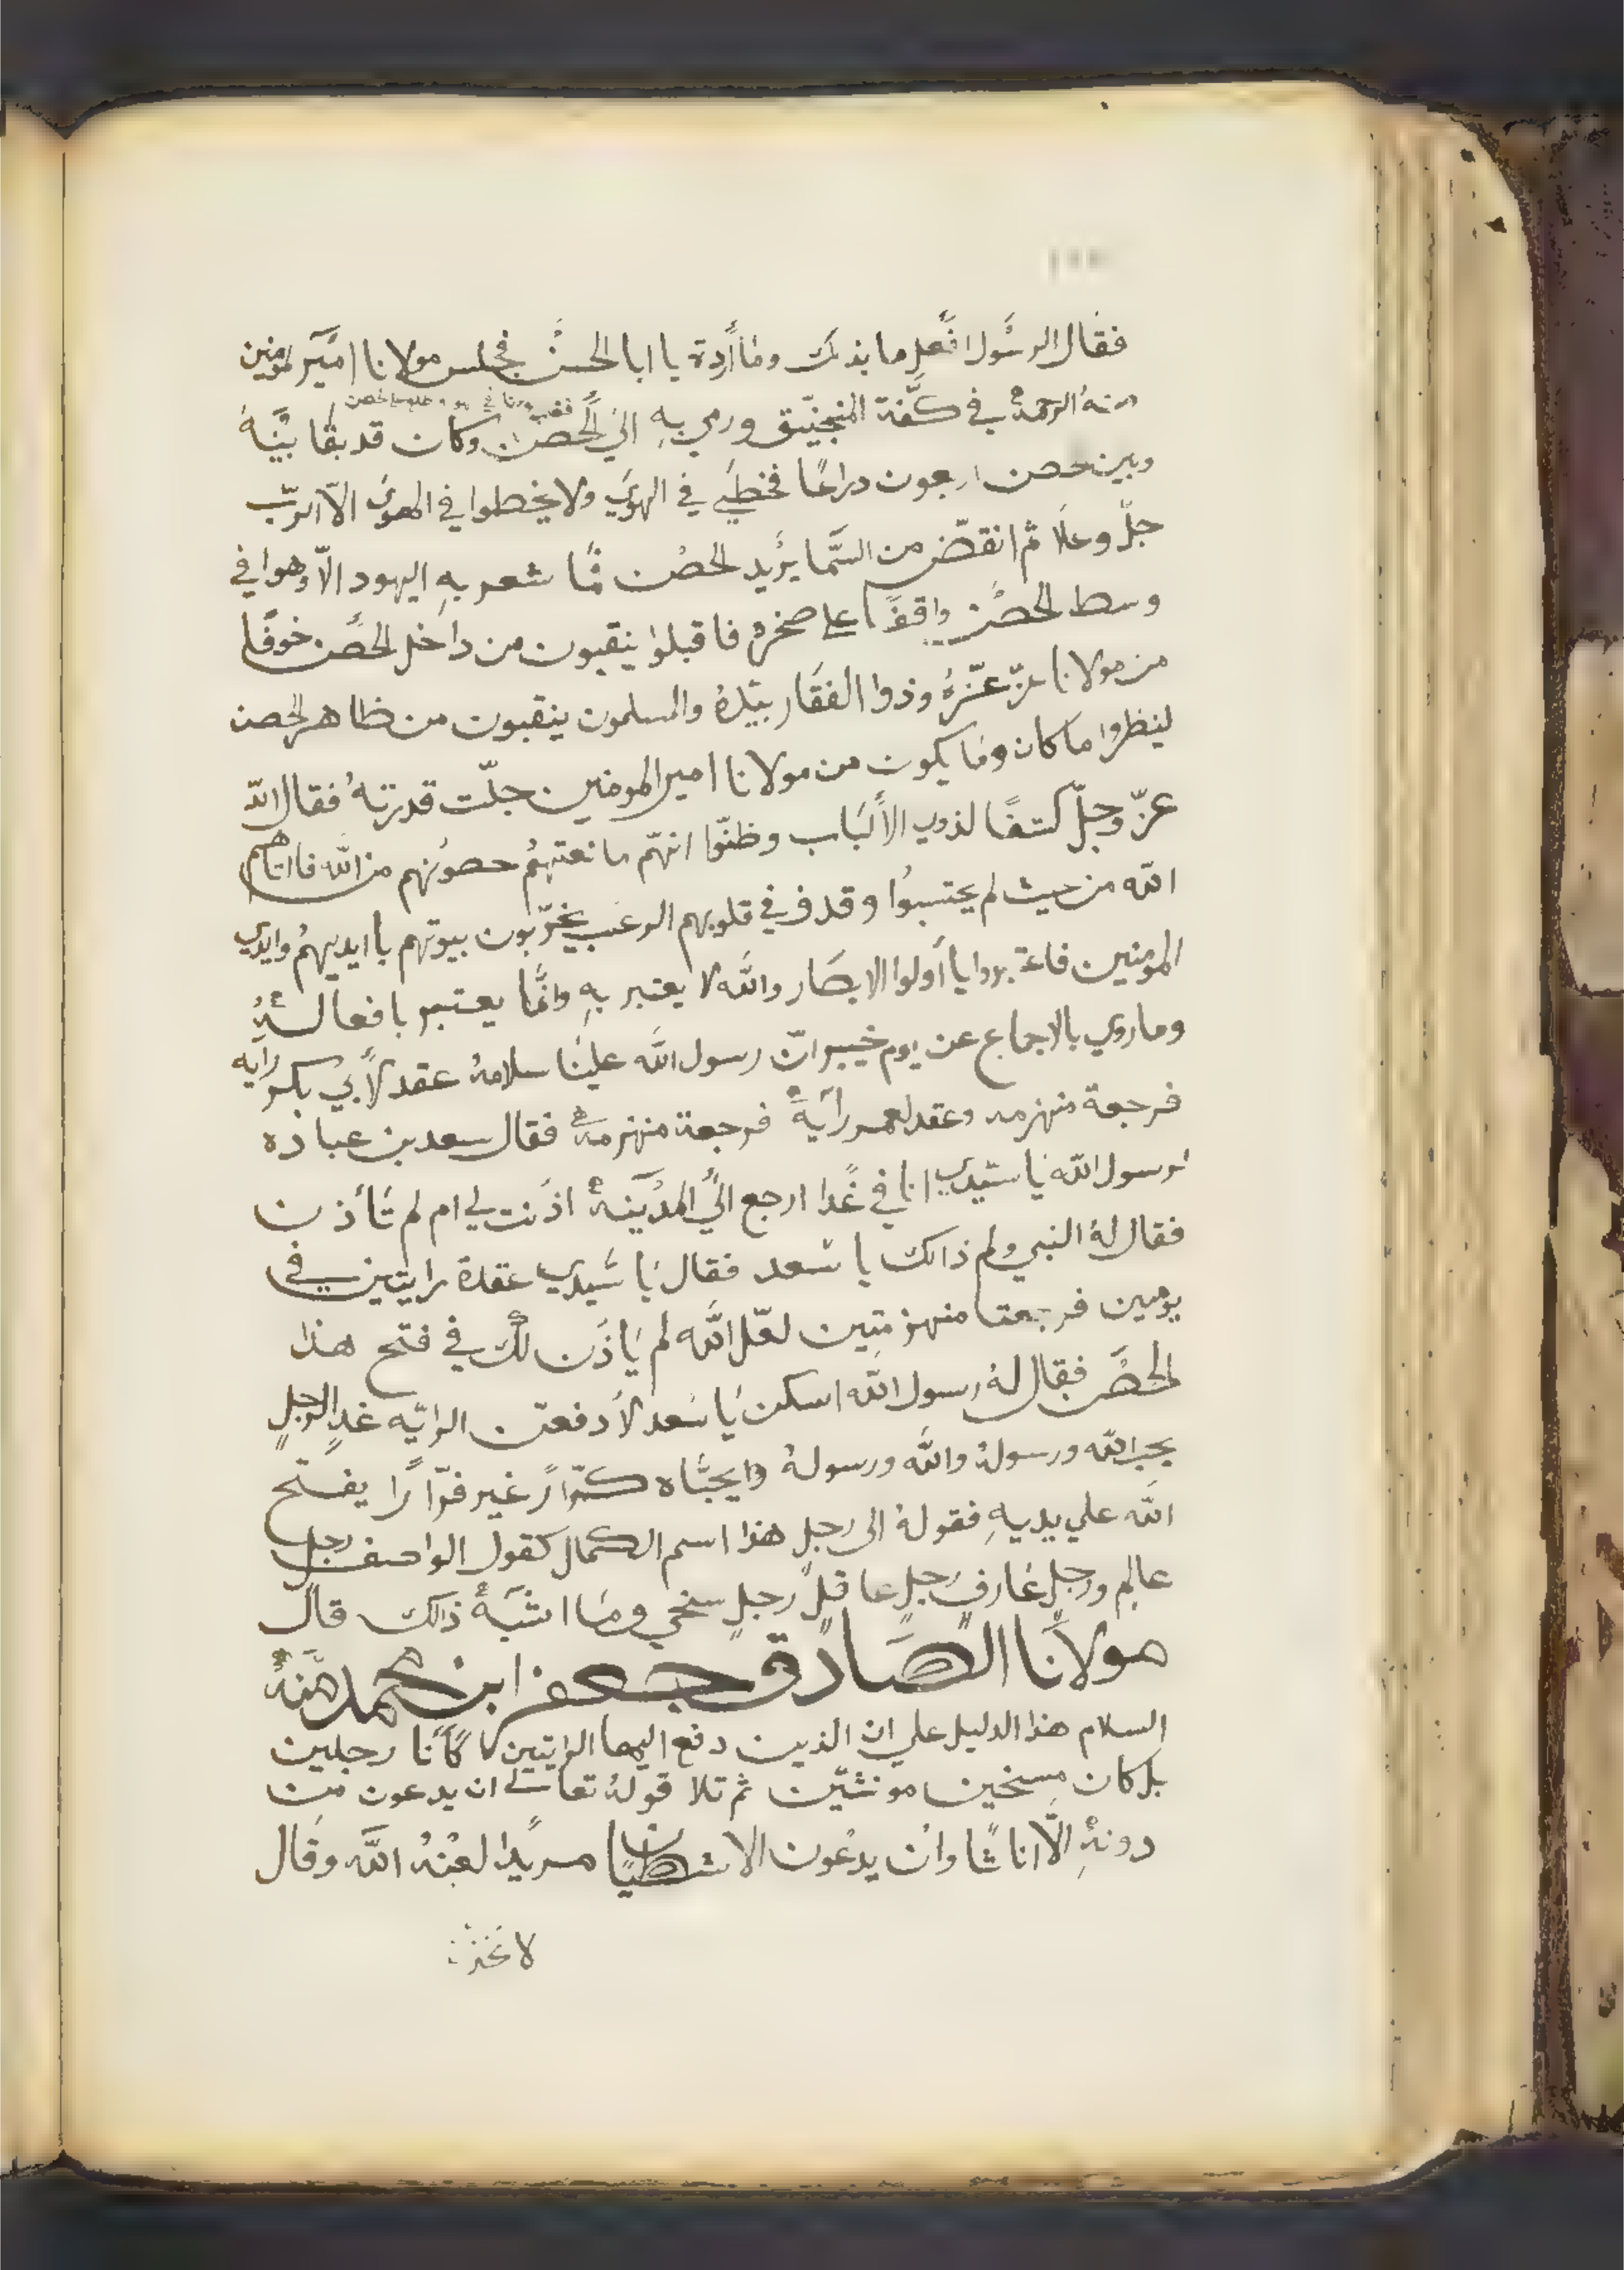 فقال الرسول افعل ما بذلك وما أردة يا ابا الحسن فجلس مولانا امير المومنين
منهُ الرحمة في كفّة المنجنيق ورمي بهِ الي الحصن وكان قد بقا بينهُ
وبين حصن اربعون دراعًا فخطي في الهوي ولا يخطوا في الهوي الّا الربّ
جلّ وعلا ثم انقضّ من السّما يريد لحصن فما شعر بهِ اليهود الّا وهوا في
وسط الحصن واقفًا علي صخرة فاقبلوا ينقبون من داخل الحصن خوفًا
من مولانا عزّ عزّهُ وذوا الفقار بيدهُ والمسلمون ينقبون من ظاهر الحصن
لينظروا ما كان وما يكون من مولانا امير المومنين جلّت قدرتهُ فقال اللّه
عزّ وجلّ كشفًا لذوي الألباب وظنّوا انهّم مانعتهمُ حصونهم من اللّه فااتاهم
اللّه من حيث لم يحتسبوا وقدف في قلوبهم الرعب يخرّبون بيوتهم باايديهمُ وايدي
المومنين فاعتبروا يا أولوا الابصار واللّه لا يعتبر بهِ وانّما يعتبر بافعالهُ
وما روي بالاجماع عن يوم خيبر انّ رسول اللّه علينا سلامهُ عقد لأبي بكر رايه
فرجعة منهزمه وعقد لعمر رأيةً فرجعة منهزمة فقال سعد بن عباده
لرسول اللّه يا سيّدي انا في غدا ارجع اليُ المدينة اذنت لي ام لم تأذن
فقال لهُ النبي ولم ذالك يا سعد فقال يا سيدي عقدة رايتين في
يومين فرجعتا منهزمتين لعلّ اللّه لم يأذن لك في فتح هذا
الحصن فقال لهُ رسول اللّه اسكن يا سعد لأدفعن الرايّه غدا لرجلٍ
يحب اللّه ورسولهُ واللّه ورسولهُ وايحبّاه كرّارً غير فرّارًا يفتح
اللّه علي يديهِ فقولهُ الى رجلٍ هذا اسم الكمال كقول الواصف رجل
عالم ورجلٍ عارفٍ رجلٍ عاقلٍ رجلٍ سخي وما اشبهُ ذالك قال
مولانا الصادق جعفر ابن محمد منهُ
السلام هذا الدليل علي ان الذين دفع اليهما الرايتين ما كانا رجلين
بل كان مسخين مونثيّن ثم تلا قولهُ تعالي ان يدعون من
دونهِ الّا اناثًا وان يدعون الا شيطانًا مريدًا لعنهُ اللّه وقال
لا تخذن